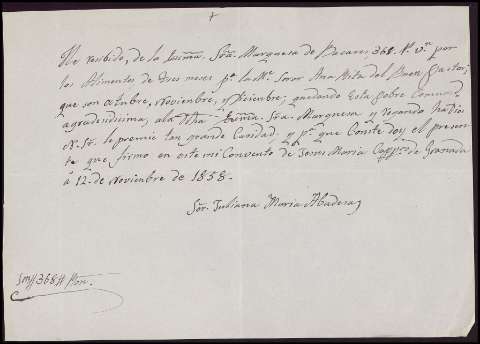 +
He resibido, de la Exsma. Sra. Marquesa de Pacares 368 Rs. Vn. por
los Alimentos de Tres meses pa. la Me. Soror Ana Rita del Buen Pastor;
que son octubre, Noviembre, y Diciembre; quedando esta pobre comund.
agradesidisima, ala Dha. Exsma. Sra. Marquesa y rogando ha Dios
N. Sr. le premie tan grande Caridad, y pa. que Conste doy el presen
te que firmo en este mi Convento de Jesus Maria Cappas. de Granada
á 12 de Noviembre de 1858.
Sor. Juliana Maria Abadesa
Son 368 Ron.